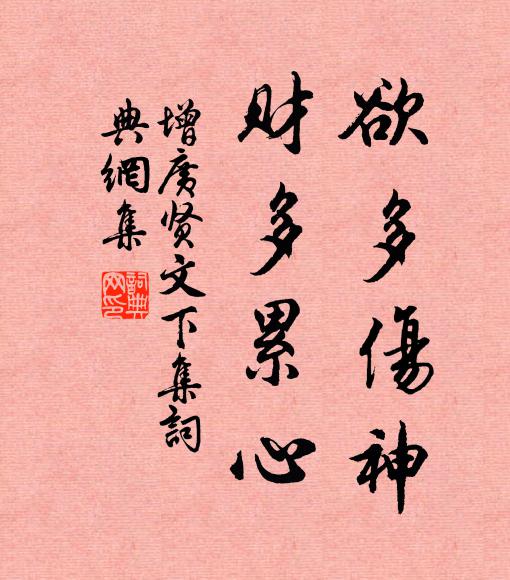 欲多傷神
財多累心
增廣贤文下集詞
典網集
詞典
网印